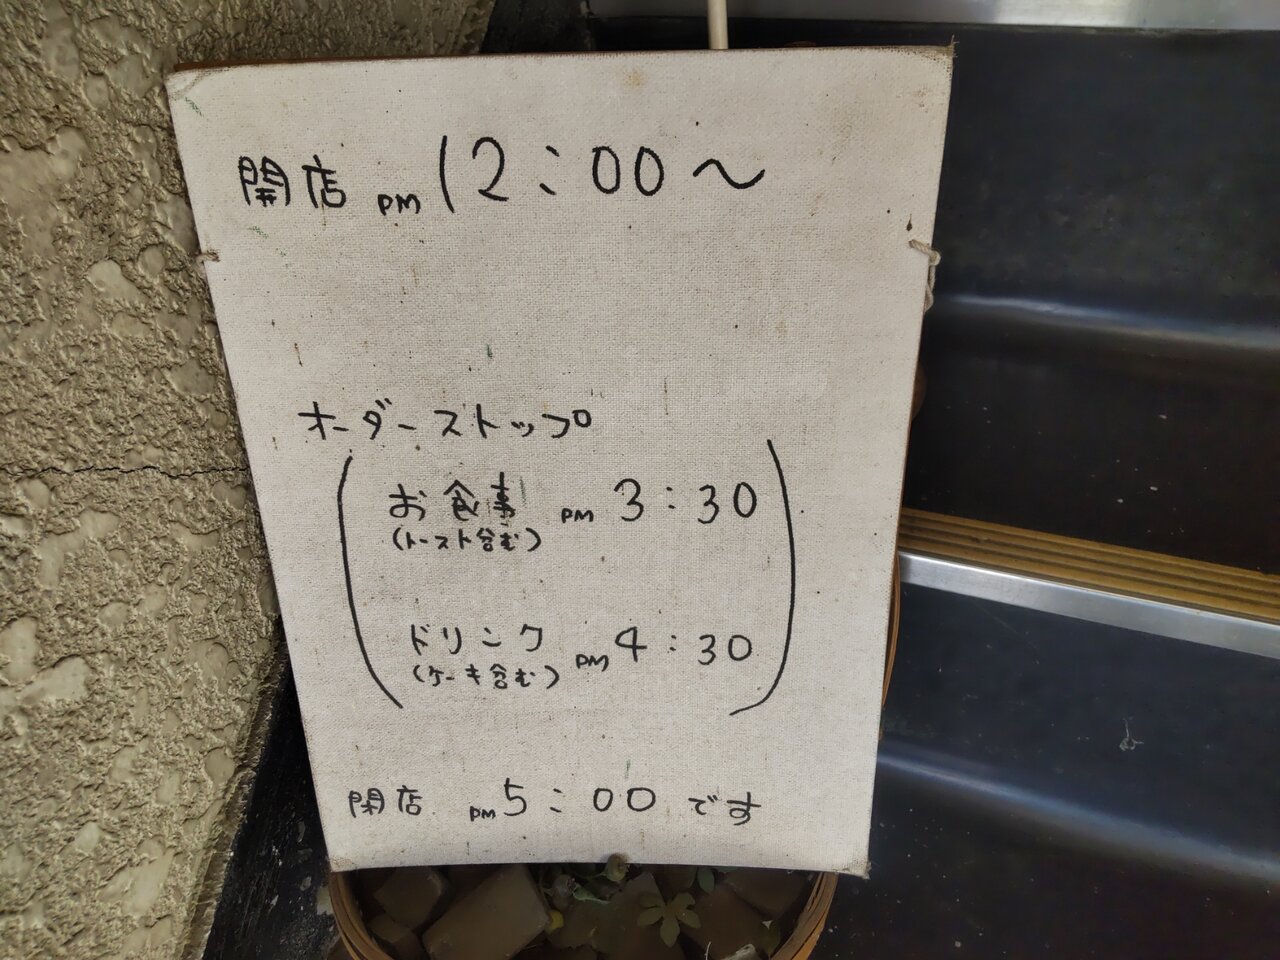 開店 PM 12:00～
オーダーストップ
お食事 PM 3:30
(トースト含む)
ドリンク PM 4:30
(ケーキ含む)
閉店 PM 5:00 です